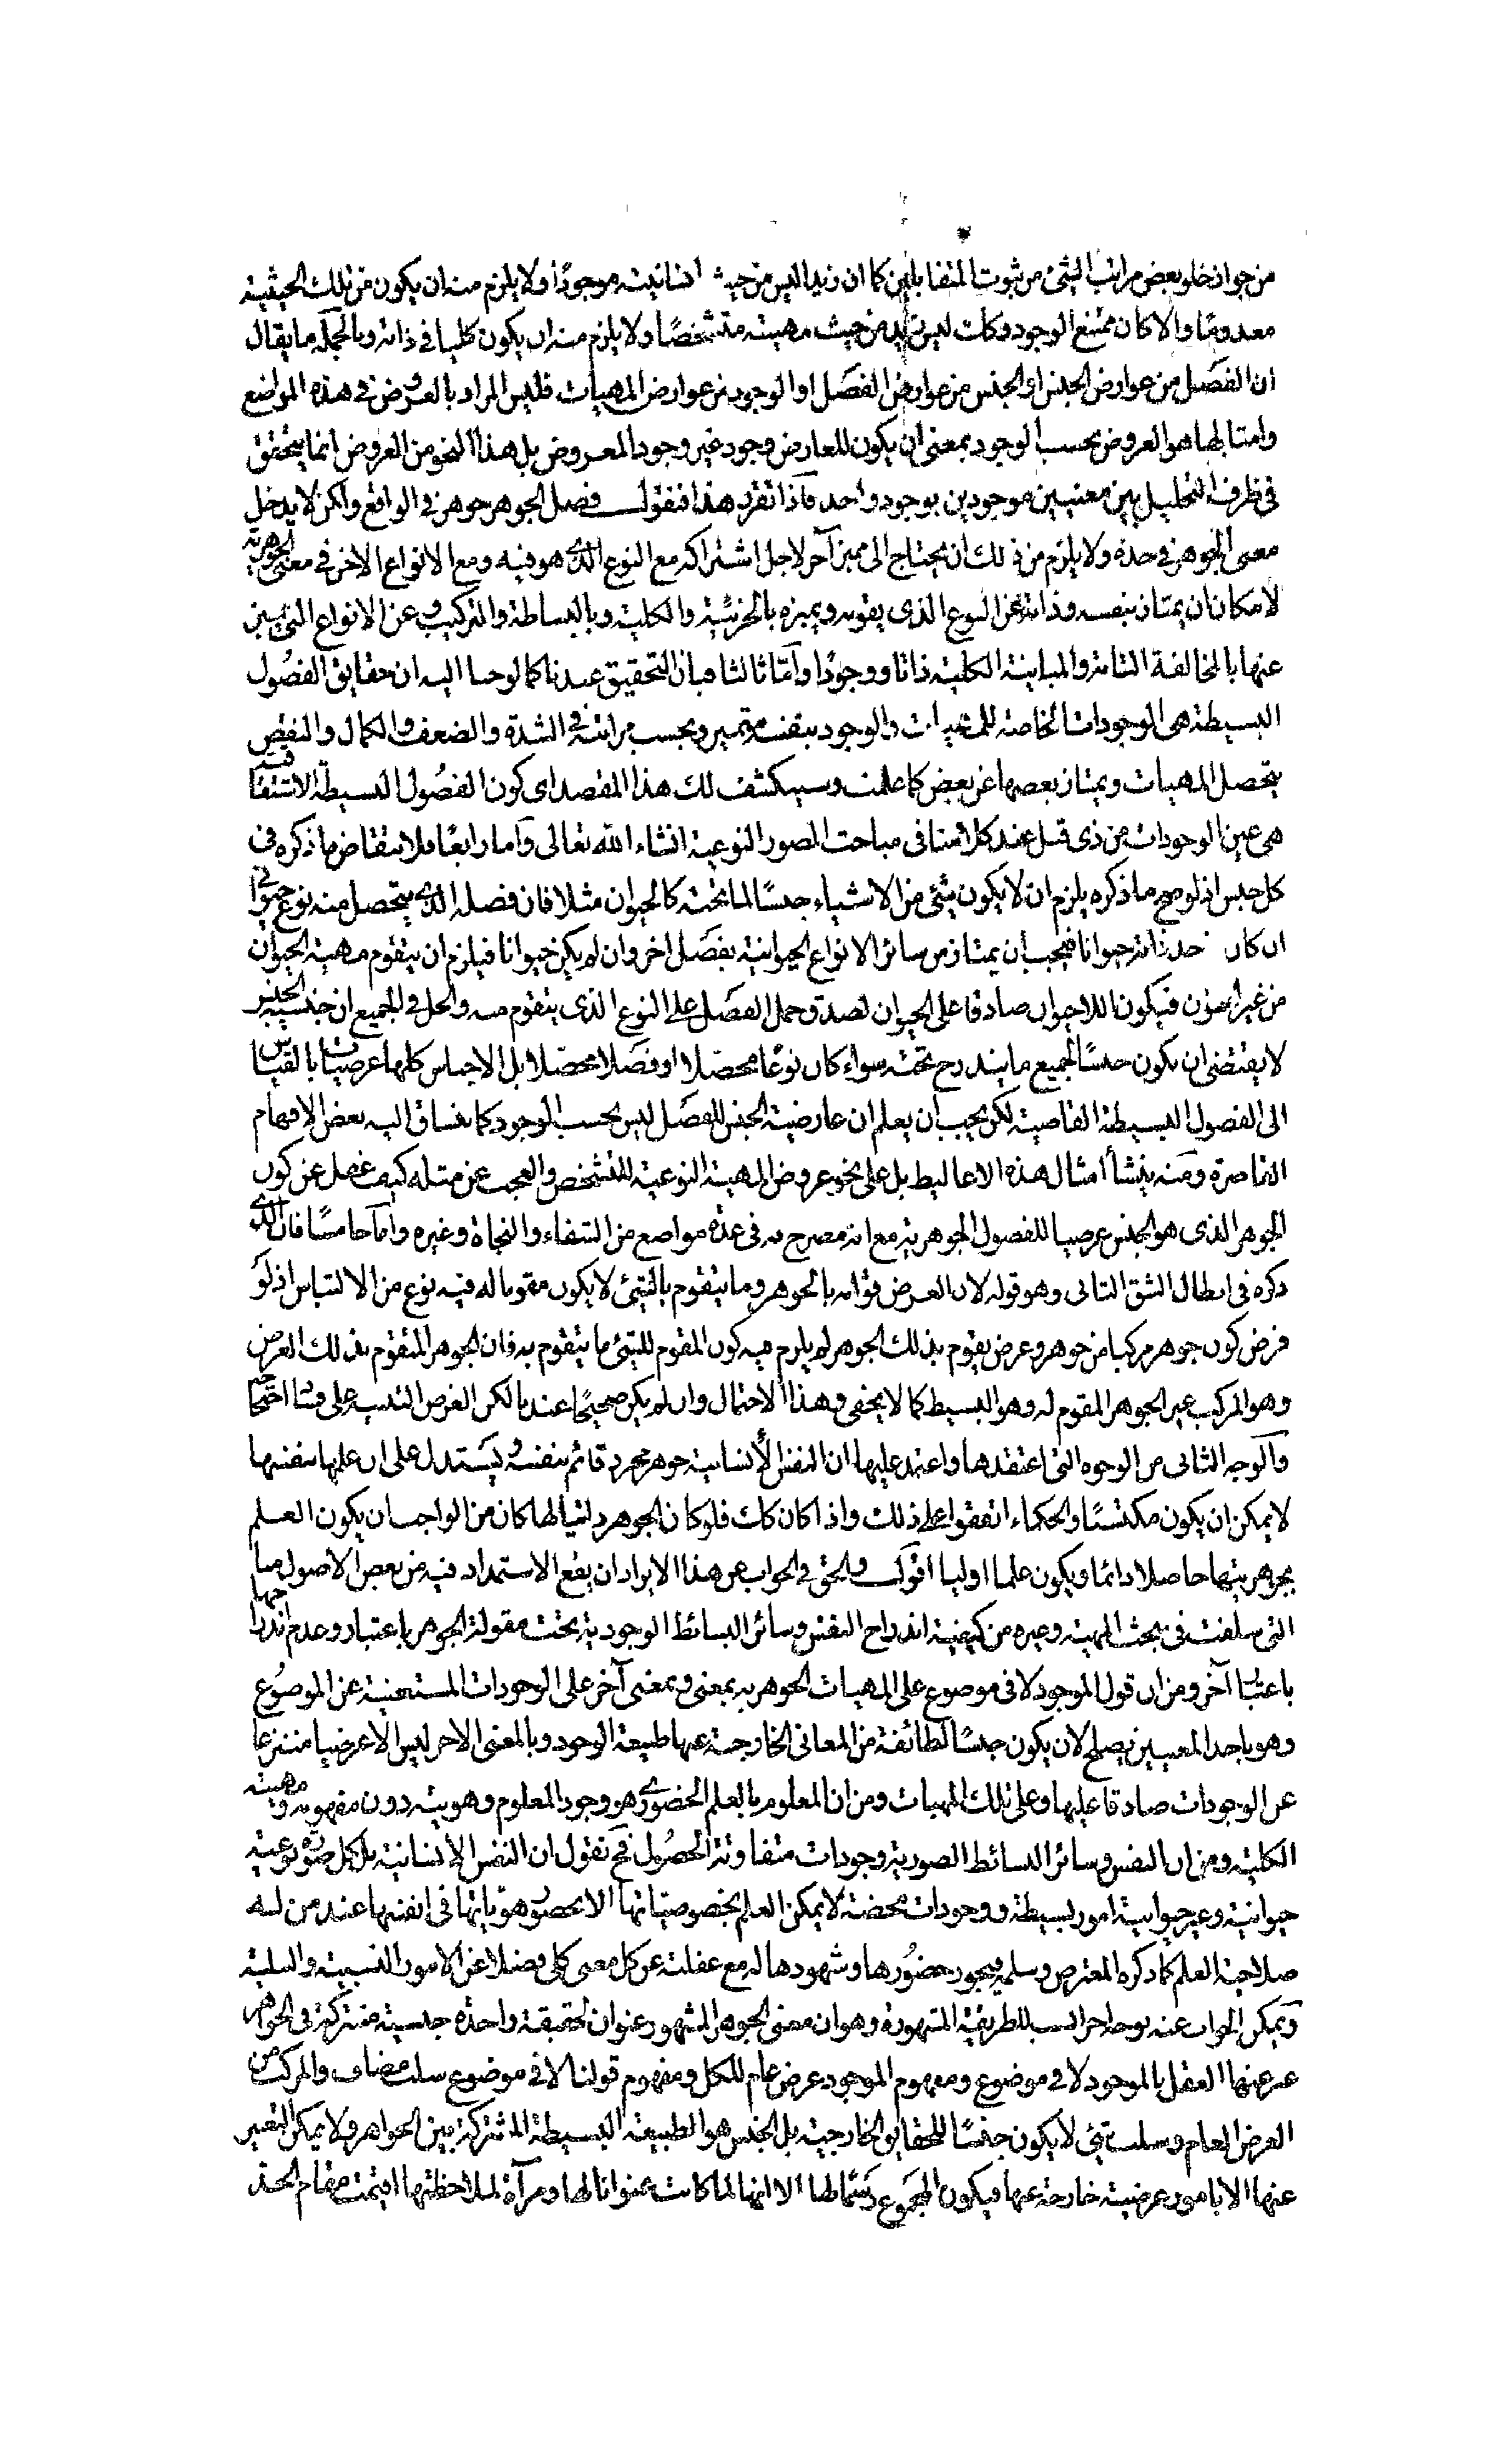 من جواز خلو بعض مراتب الشئ من ثبوت المتقابلين كما ان زيدا ليس من حيث انسانيته موجودًا ولا يلزم منه ان يكون من تلك الحيثية
معدومًا والا كان ممتنع الوجود وكك ليس زيد من حيث مهيته متشخصًا ولا يلزم منه ان يكون كليا في ذاته وبالجملة ما يقال
ان الفصل من عوارض الجنس او الجنس من عوارض الفصل او الوجود من عوارض المهيات فليس المراد بالعروض في هذه المواضع
وامثالها هو العروض بحسب الوجود بمعنى ان يكون للعارض وجود غير وجود المعروض بل هذا النحو من العروض انما يتحقق
في ظرف التحليل بين معنيين موجودين بوجود واحد فاذا تقرر هذا فنقول فصل الجوهر جوهر في الواقع ولكن لا يدخل
معنى الجوهر في حده ولا يلزم من ذلك ان يحتاج الى مميز آخر لاجل اشتراكه مع النوع الذي هو فيه ومع الانواع الاخر في معنى الجوهرية
لامكان ان يمتاز بنفسه وذاته عن النوع الذي يقومه ويميزه بالجزئية والكلية وبالبساطة والتركيب وعن الانواع التي تميز
عنها بالمخالفة التامة والمباينة الكلية ذاتا ووجودًا وامّا ثالثا فبان التحقيق عندنا كما لوحنا اليه ان حقايق الفصُول
البسيطة هي الوجودات الخاصة للمهيات والوجود بنفسه متميز وبحسب مراتبه في الشدة والضعف والكمال والنقص
يتحصل المهيات ويمتاز بعضها عن بعض كما علمت وسينكشف لك هذا المقصد اى كون الفصُول البسيطة الاشتقاقية
هي عين الوجودات من ذى قبل عند كلامنا في مباحث الصور النوعية انشاء الله تعالى واما رابعًا فلانتقاض ما ذكره في
كل جنس اذ لو صح ما ذكره يلزم ان لا يكون شئ من الاشياء جنسًا لما تحته كالحيوان مثلا فان فصله الذي يتحصل منه نوع حيواني
ان كان حد ذاته حيوانا فيجب ان يمتاز من سائر الانواع الحيوانية بفصَل اخر وان لم يكن حيوانا فيلزم ان يتقوم مهية الحيوان
من غير الحيوان فيكون اللاحيوان صادقا على الحيوان لصدق حمل الفصَل على النوع الذي يتقوم منه والحل في الجميع ان جنسية الجنس
لا يقتضى ان يكون جنسًا لجميع ما يندرج تحته سواء كان نوعًا محصّلا او فصَلا محصّلا بل الاجناس كلها عرضيات بالقياس
الى الفصول البسيطة القاصية لكن يجب ان يعلم ان عارضية الجنس للفصَل ليس بحسب الوجود كما ينساق اليه بعض الافهام
القاصرة ومنه ينشأ امثال هذه الاغاليط بل على نحو عروض المهية النوعية للتشخص والعجب عن مثله كيف غفل عن كون
الجوهر الذى هو الجنس عرضيا للفصول الجوهرية مع انه مصرح به في عدة مواضع من الشفاء والنجاة وغيره وامّا خامسًا فان الذي
ذكره في ابطال الشق الثانى وهو قوله لان العرض قوامه بالجوهر وما يتقوم بالشئ لا يكون مقوما له فيه نوع من الالتباس اذ لو
فرض كون جوهر مركبا من جوهر وعرض يقوم بذلك الجوهر لم يلزم فيه كون المقوم للشئ ما يتقوم به فان الجوهر المتقوم بذلك العرض
وهو المركب غير الجوهر المقوم له وهو البسيط كما لا يخفى وهذا الاحتمال وان لم يكن صحيحًا عندنا لكن الغرض التنبيه على فساد احتجاجه
والوجه الثانى من الوجوه التي اعتقدها واعتمد عليها ان النفس الأنسانية جوهر مجرد قائم بنفسه ويستدل على ان علمها بنفسها
لا يمكن ان يكون مكتسبًا والحكماء اتفقوا على ذلك واذا كان كك فلو كان الجوهر ذاتيا لها كان من الواجب ان يكون العلم
بجوهريتها حاصلا دائما ويكون علما اوليا اقول والحق في الجواب عن هذا الايراد ان يقع الاستمداد فيه من بعض الاصول منا
التي سلفت في بحث المهية وغيره من كيفية اندراج النفس وسائر البسائط الوجودية تحت مقولة الجوهر باعتبار وعدم اندراجها
باعتبار آخر ومن ان قول الموجود لا في موضوع على المهيات الجوهرية بمعنى وبمعنى آخر على الوجودات المستغنية عن الموضوع
وهو باحد المعنيين يصلح لان يكون جنسًا لطائفة من المعانى الخارجة عنها طبيعة الوجود وبالمعنى الاخر ليس الا عرضيا منتزعا
عن الوجودات صادقا عليها وعلى تلك المهيات ومن ان المعلوم بالعلم الحضورى هو وجود المعلوم وهويته دون مفهومه ومهيته
الكلية ومن ان النفس وسائر البسائط الصورية وجودات متفاوتة الحصُول فح نقول ان النفس الانسانية بل كل صورة نوعية
حيوانية وغير حيوانية امور بسيطة ووجودات محضة لا يمكن العلم بخصوصياتها الا بحضور هوياتها في انفسها عند من له
صلاحية العلم كما ذكره المعترض وسلمه فيجوز حضُورها وشهودها له مع غفلته عن كل معنى كلى فضلا عن الامور النسبية والسلبية
ويمكن الجواب عنه بوجه اخر انسب للطريقة المشهورة وهو ان معنى الجوهر المشهور عنوان لحقيقة واحدة جنسية مشتركة في الجواهر
عبر عنها العقل بالموجود لا في موضوع ومفهوم الموجود عرض عام للكل ومفهوم قولنا لا في موضوع سلب مضاف والمركب من
العرض العام وسلب شئ لا يكون جنسًا للحقايق الخارجية بل الجنس هو الطبيعة البسيطة المشتركة بين الجواهر ولا يمكن التعبير
عنها الا بامور عرضية خارجة عنها فيكون المجموع رسمًا لها الا انها لما كانت عنوانا لها ومرآة لملاحظتها اقيمت مقام الحد